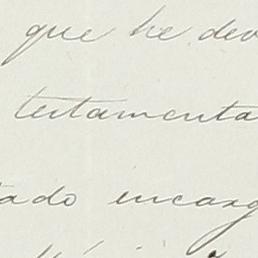 que he dev
testamenta
tado encarg